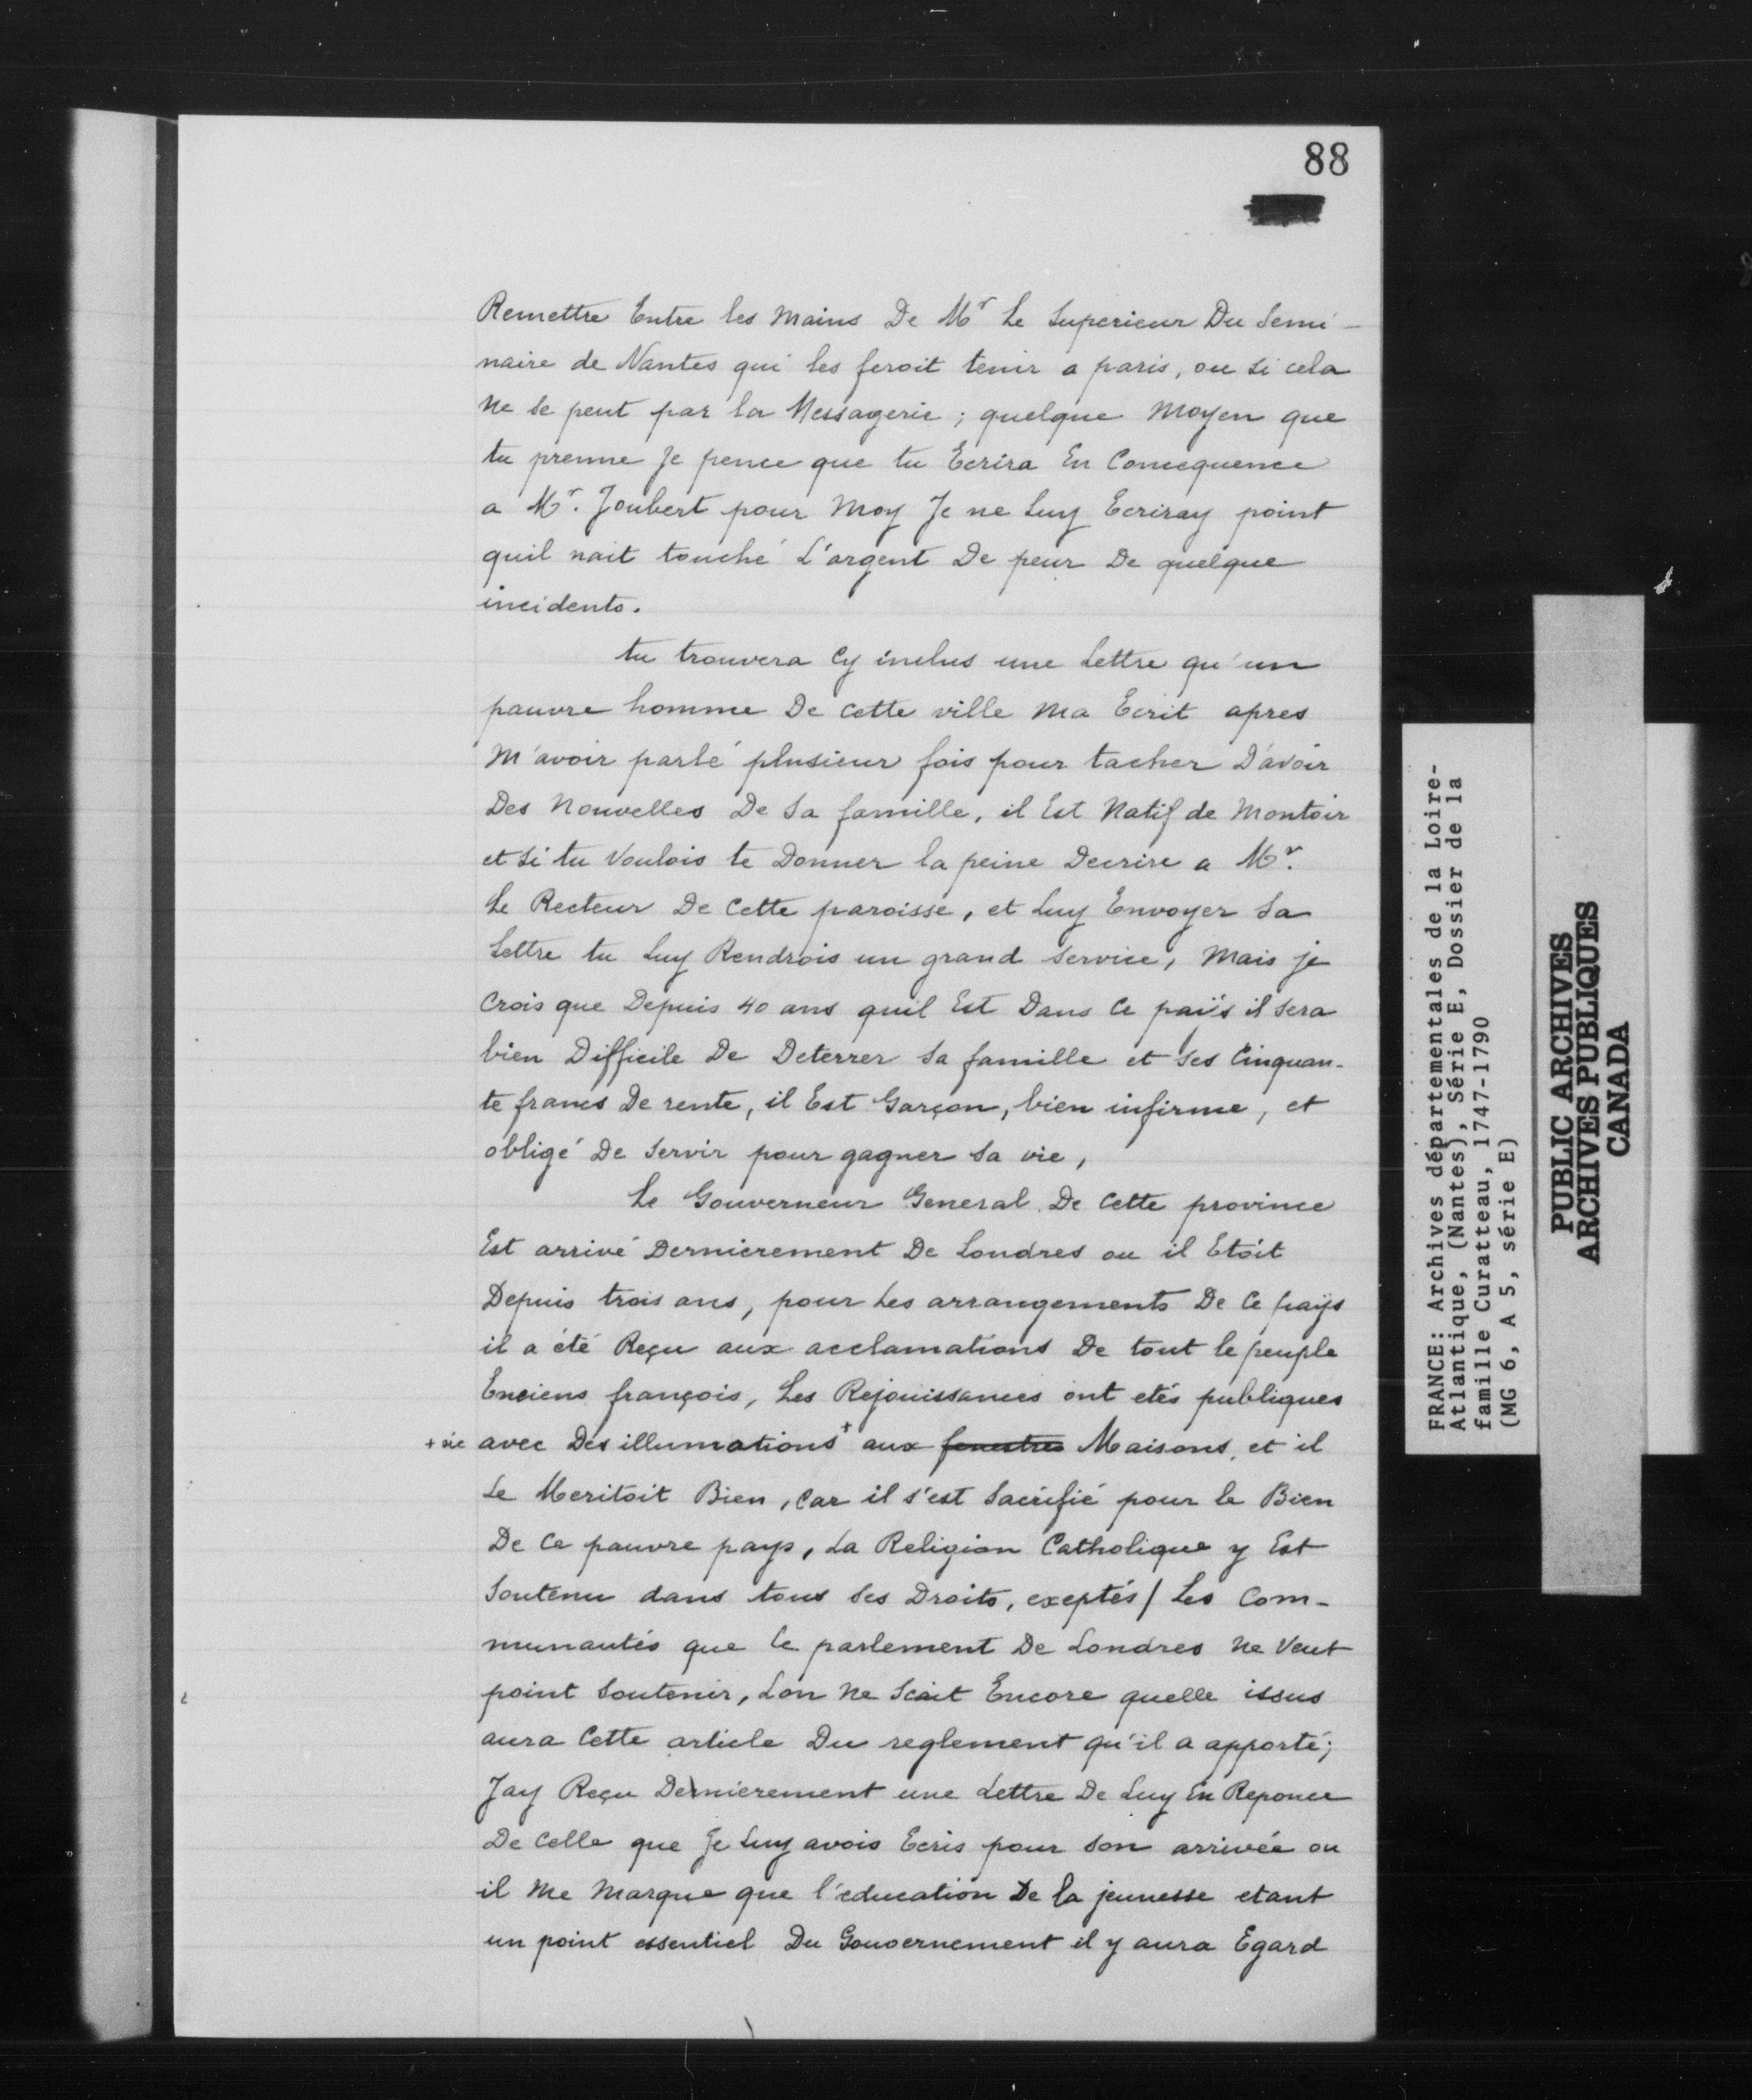 88
Remettre Entre les mains De Mr Le Superieur Du Semi-
naire de Nantes qui les feroit tenir a paris, ou si cela
ne se peut par la Messagerie ; quelque moyen que
tu prenne Je pence que tu Ecrira En Concequence
a Mr. Joubert pour Moy Je ne Luy Ecriray point
quil nait touché L'argent De peur De quelque
incidents.
tu trouvera Cy inclus une Lettre qu'un
pauvre homme De cette ville Ma Ecrit apres
M'avoir parlé plusieur fois pour tacher D'avoir
Des Nouvelles De Sa famille, il Est Natif de Montoir
et si tu Voulois te Donner la peine Decrire a Mr.
Le Recteur De Cette paroisse, et Luy Envoyer Sa
Lettre tu Luy Rendrois un grand Service, Mais je
Crois que Depuis 40 ans quil Est Dans Ce païs il sera
bien Difficile De Deterrer Sa famille et ses Cinquan-
te francs De rente, il Est Garçon, bien infirme, et
obligé De Servir pour gagner Sa vie,
Le Gouverneur General De Cette province
Est arrivé Dernierement De Londres ou il Etoit
Depuis trois ans, pour Les arrangements De Ce païs
il a été Reçu aux acclamations De tout le peuple
Enciens françois, Les Rejouissances ont etés publiques
+ sic avec Des illumations + aux fenestres Maisons, et il
Le Meritoit Bien, Car il s'est Sacrifié pour le Bien
De Ce pauvre pays, La Religion Catholique y Est
Soutenu dans tous Ses Droits, exeptés / Les Com-
munautés que Le parlement De Londres Ne Veut
point Soutenir, Lon Ne Scait Encore quelle issus
aura Cette article Du reglement qu'il a apporté ;
Jay Reçu Dernierement une Lettre De Luy En Reponce
De Celle que Je Luy avois Ecris pour son arrivée ou
il Me Marque que l'education De la jeunesse etant
un point essentiel Du Gouvernement il y aura Egard
FRANCE: Archives départementales de la Loire-
Atlantique, (Nantes), Série E, Dossier de la
famille Curatteau, 1747-1790
(MG 6, A 5, série E)
PUBLIC ARCHIVES
ARCHIVES PUBLIQUES
CANADA